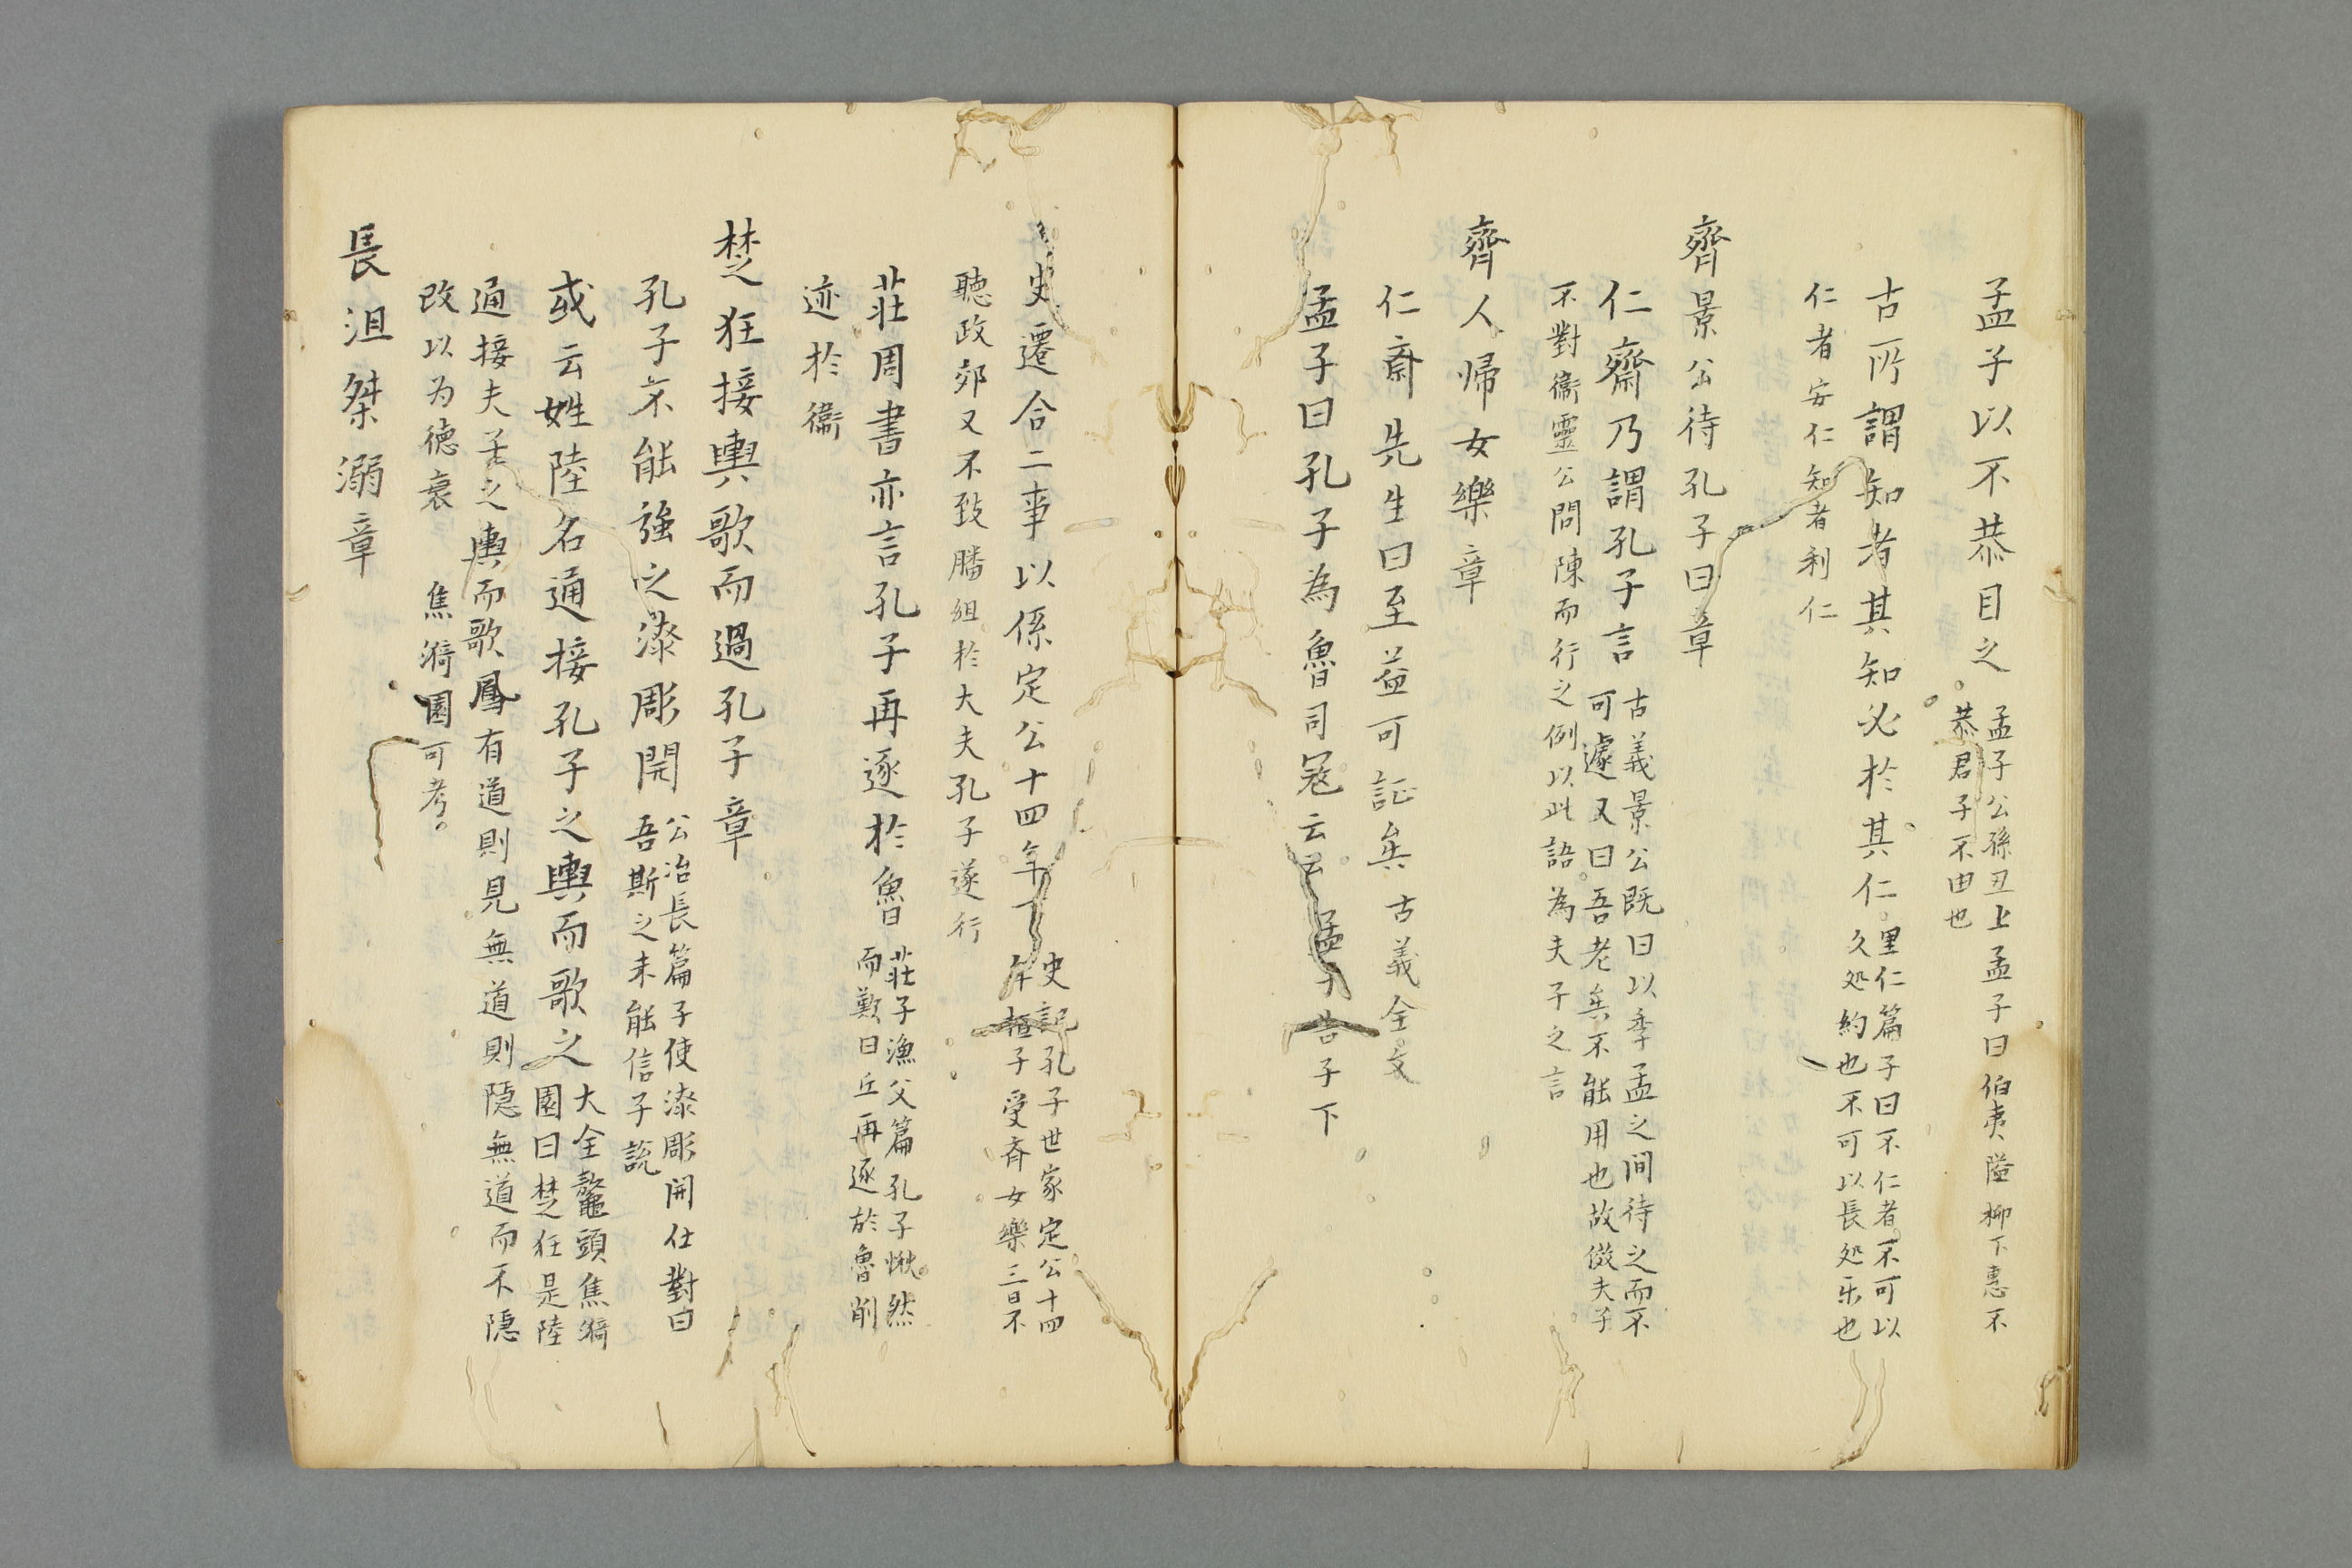 孟子以不恭目之
孟子公孫丑上孟子曰伯夷隘柳下惠不
恭君子不由也
古所謂知者其知必於其仁
里仁篇子曰不仁者不可以
久処約也不可以長処乐也
仁者安仁知者利仁
齊景公待孔子曰章
仁齋乃謂孔子言
古義景公既曰以季孟之間待之而不
可遽又曰吾老矣不能用也故倣夫子
不對衞靈公問陳而行之例以此語為夫子之言
齊人帰女樂章
仁齋先生曰至益可証矣
古義全文
孟子曰孔子為魯司寇云云
孟子告子下
史遷合二事以係定公十四年下
史記孔子世家定公十四
年桓子受斉女樂三日不
聴政郊又不致膰組於大夫孔子遂行
莊周書亦言孔子再逐於魯
莊子漁父篇孔子愀然
而歎曰丘再逐於魯削
迹於衞
楚狂接輿歌而過孔子章
孔子不能強之漆彫開
公冶長篇子使漆彫開仕對曰
吾斯之未能信子説
或云姓陸名通接孔子之輿而歌之
大全鼇頭焦漪
園曰楚狂是陸
通接夫子之輿而歌鳳有道則見無道則隠無道而不隠
改以为徳衰 焦漪園可考。
長沮桀溺章